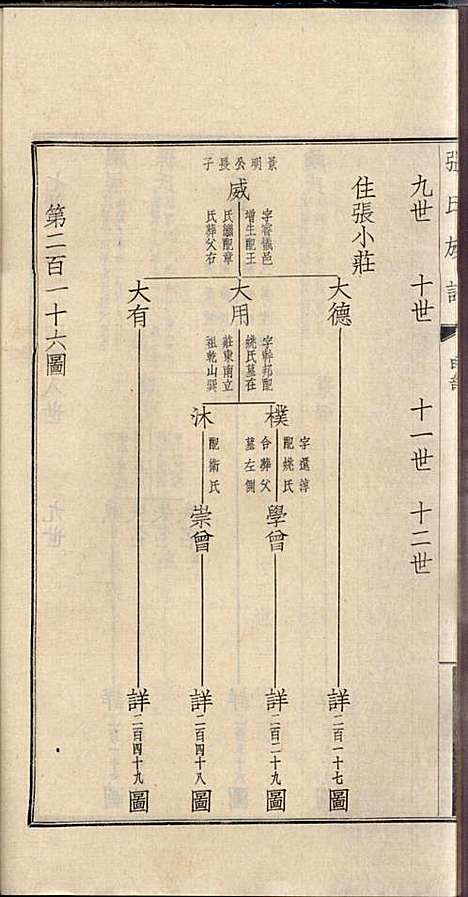 張氏族譜
九世 十世 十一世 十二世
住張小莊
景明公長子
威
字睿儀邑
增生配王
氏繼配章
氏葬父右
大德
詳二百一十七圖
大用
字幹邦配
姚氏墓在
莊東南立
祖乾山巽
樸
字還淳
配姚氏
合葬父
墓左側
學曾
詳二百二十九圖
沐
配衛氏
崇曾
詳二百四十八圖
大有
詳二百四十九圖
第二百一十六圖